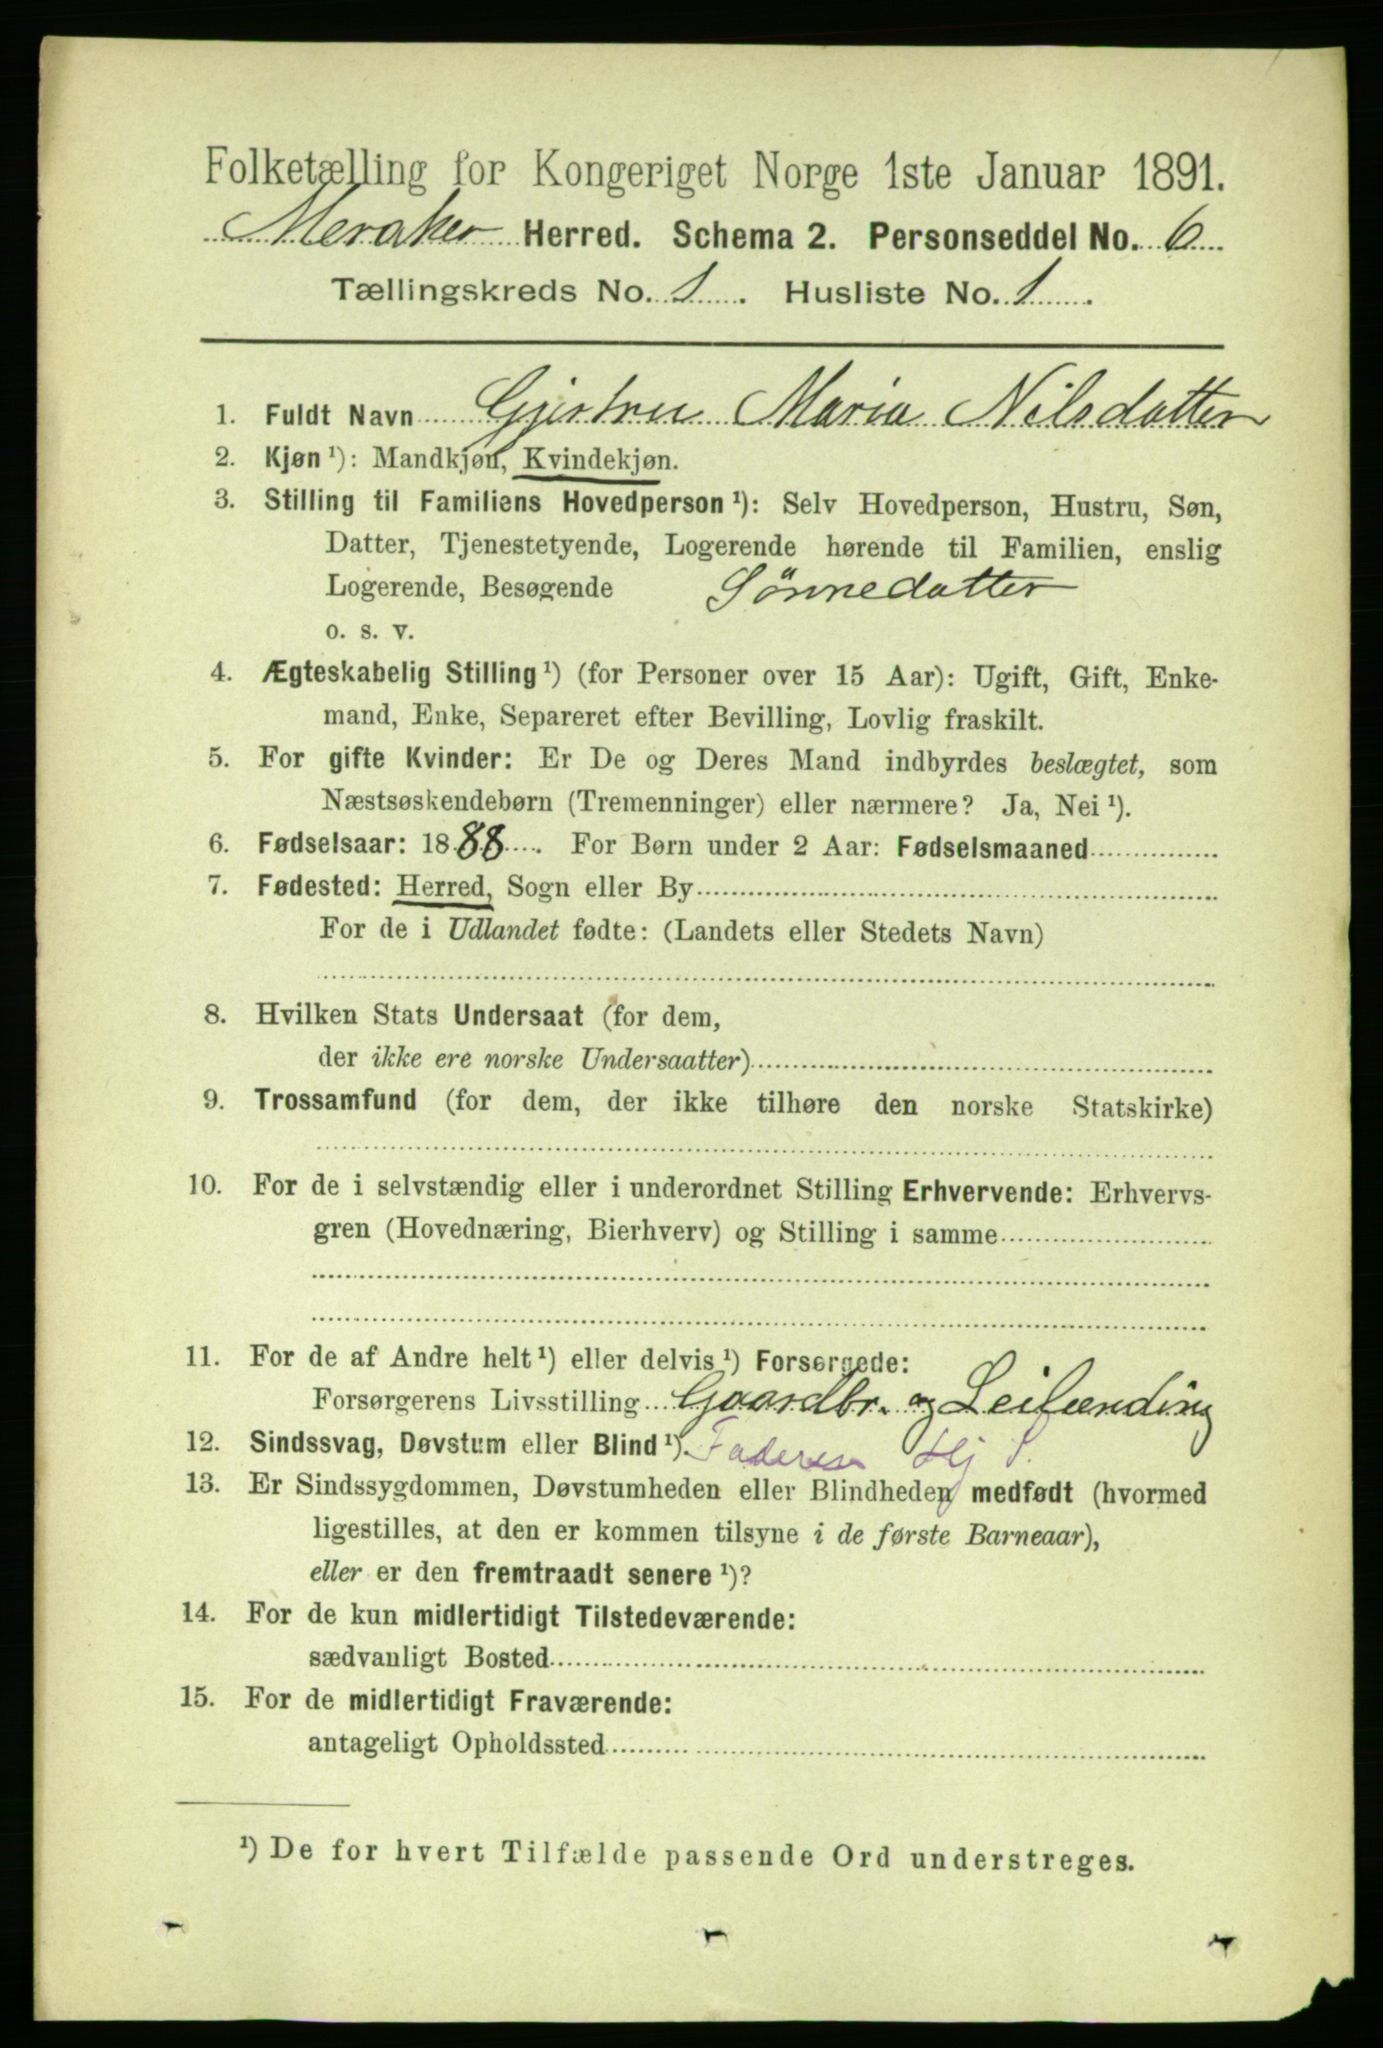 Folketælling for Kongeriget Norge 1ste Januar 1891.
Meraker Herred. Schema 2. Personseddel No. 6
Tællingskreds No. 1. Husliste No. 1.
1. Fuldt Navn Gjertru Maria Nilsdatter
2. Kjøn ¹): Mandkjøn, Kvindekjøn.
3. Stilling til Familiens Hovedperson ¹): Selv Hovedperson, Hustru, Søn,
Datter, Tjenestetyende, Logerende hørende til Familien, enslig
Logerende, Besøgende Sönnedatter
o. s. v.
4. Ægteskabelig Stilling ¹) (for Personer over 15 Aar): Ugift, Gift, Enke-
mand, Enke, Separeret efter Bevilling, Lovlig fraskilt.
5. For gifte Kvinder: Er De og Deres Mand indbyrdes beslægtet, som
Næstsøskendebørn (Tremenninger) eller nærmere? Ja, Nei ¹).
6. Fødselsaar: 1888. For Børn under 2 Aar: Fødselsmaaned
7. Fødested: Herred, Sogn eller By
For de i Udlandet fødte: (Landets eller Stedets Navn)
8. Hvilken Stats Undersaat (for dem,
der ikke ere norske Undersaatter)
9. Trossamfund (for dem, der ikke tilhøre den norske Statskirke)
10. For de i selvstændig eller i underordnet Stilling Erhvervende: Erhvervs-
gren (Hovednæring, Bierhverv) og Stilling i samme
11. For de af Andre helt ¹) eller delvis ¹) Forsørgede:
Forsørgerens Livsstilling Gaardbr. og Leilænding
12. Sindssvag, Døvstum eller Blind ¹). Faderen Hj S.
13. Er Sindssygdommen, Døvstumheden eller Blindheden medfødt (hvormed
ligestilles, at den er kommen tilsyne i de første Barneaar),
eller er den fremtraadt senere ¹)?
14. For de kun midlertidigt Tilstedeværende:
sædvanligt Bosted
15. For de midlertidigt Fraværende:
antageligt Opholdssted
¹) De for hvert Tilfælde passende Ord understreges.